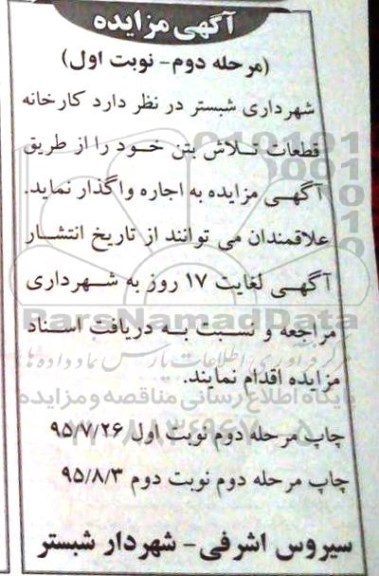 آگهی مزایده
(مرحله دوم- نوبت اول)
شهرداری شبستر در نظر دارد کارخانه
قطعات تلاش بتن خود را از طریق
آگهی مزایده به اجاره واگذار نماید.
علاقمندان می توانند از تاریخ انتشار
آگهی لغایت ۱۷ روز به شهرداری
مراجعه و نسبت به دریافت اسناد
مزایده اقدام نمایند.
چاپ مرحله دوم نوبت اول ۹۵/۷/۲۶
چاپ مرحله دوم نوبت دوم ۹۵/۸/۳
سیروس اشرفی- شهردار شبستر
ParsNamadData
پایگاه اطلاع رسانی مناقصه و مزایده